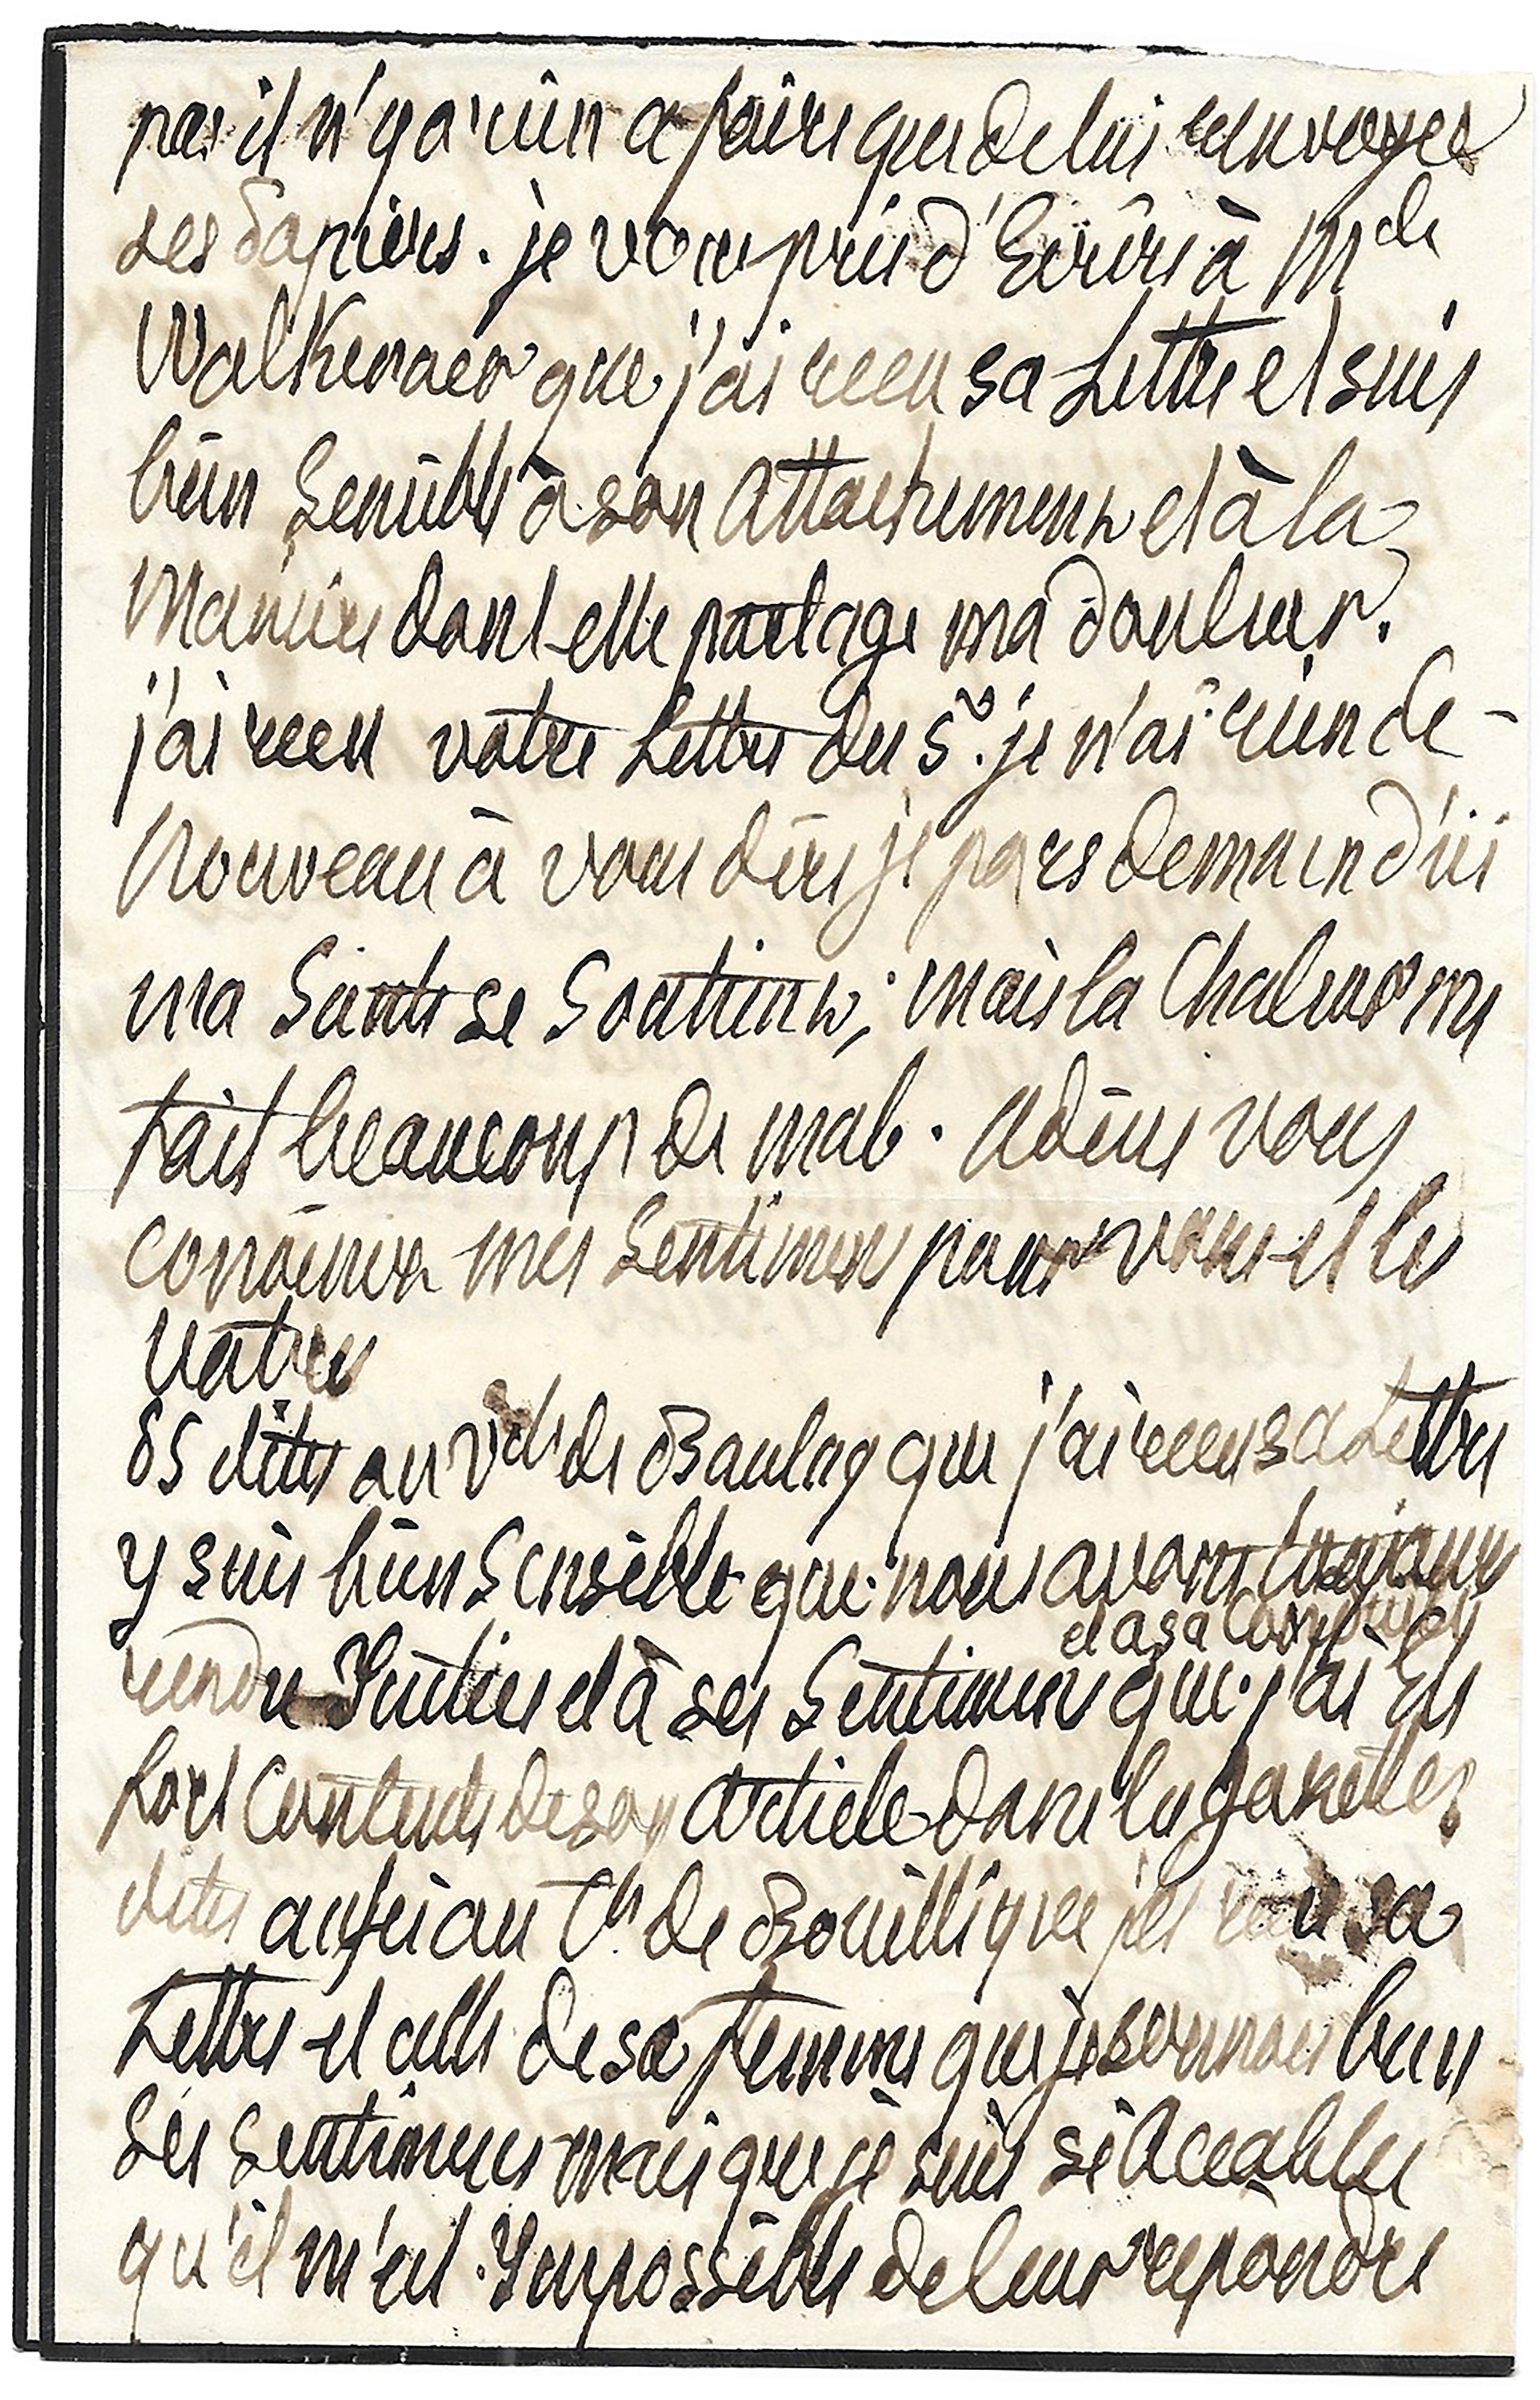 pas il n'y a rien a faire que de lui renvoyer
ses papiers. je vous prie d'Ecrire à Mde
Walkenaer que j'ai recu sa Lettre et suis
bien Sensible à son Attachement et à la
Maniere dont elle partage ma douleur.
j'ai recu votre Lettre du 5. je n'ai rien de -
Nouveau à vous dire je pars demain d'ici
ma Santé se Soutient; mais la Chaleur me
fait beaucoup de mal. adieu vous
connoissez mes Sentimens pour vous et les
votres
PS dites au Vte de Baulny que j'ai recu sa Lettre
y suis bien Sensible que nous avons toujours
et a sa Conduite
rendu Justice et à ses Sentimens que j'ai Eté
fort Contente de son article dans les gazettes
dites aussi au Ch. de Bouillé que j'ai recu sa
Lettre et celle de sa femme que je connois bien
ses sentimens mais que je suis si Accablée
qu'il m'est Impossible de leur repondre